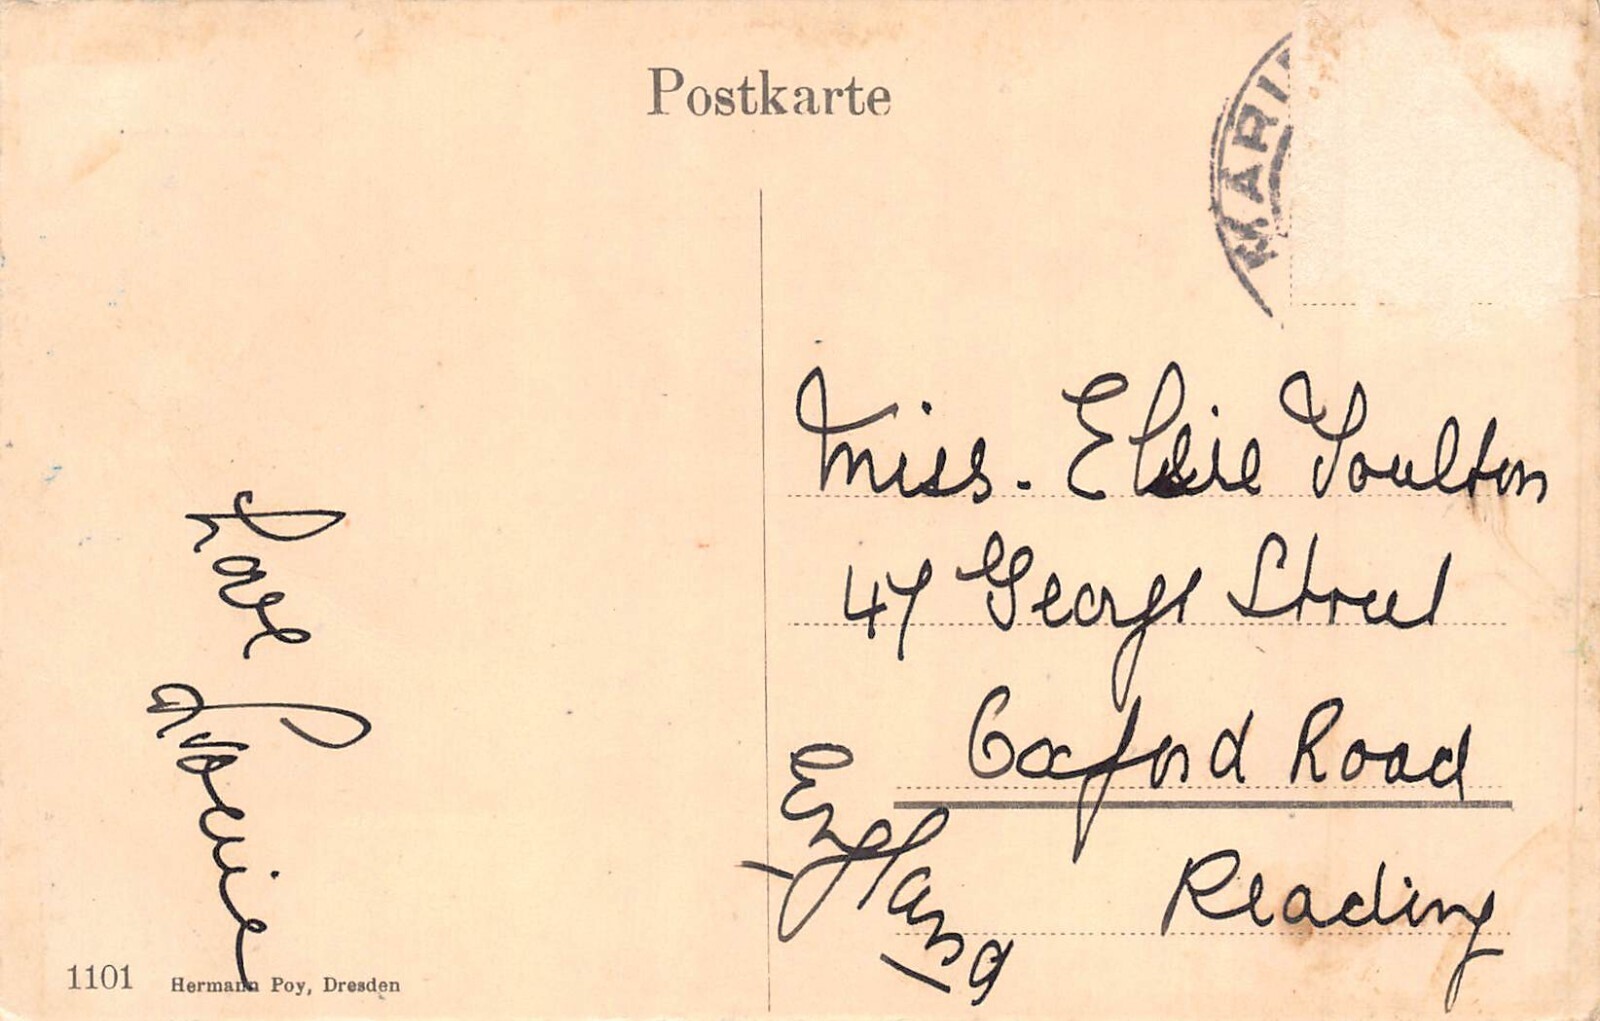 Postkarte
MARI
Miss. Elsie Youlton
47 George Street
Oxford Road
Reading
England
Love
1101 Hermann Poy, Dresden